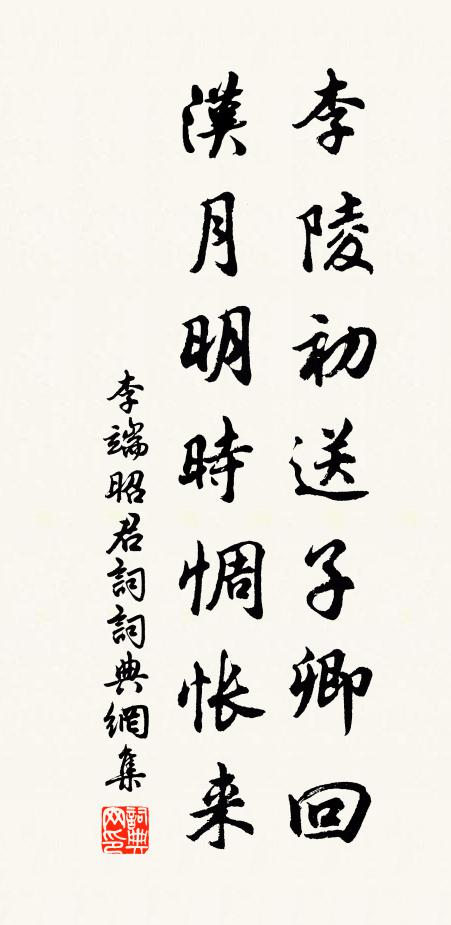 李陵初送子卿回
漢月明時惆悵来
李端昭君詞詞典網集
詞典网印